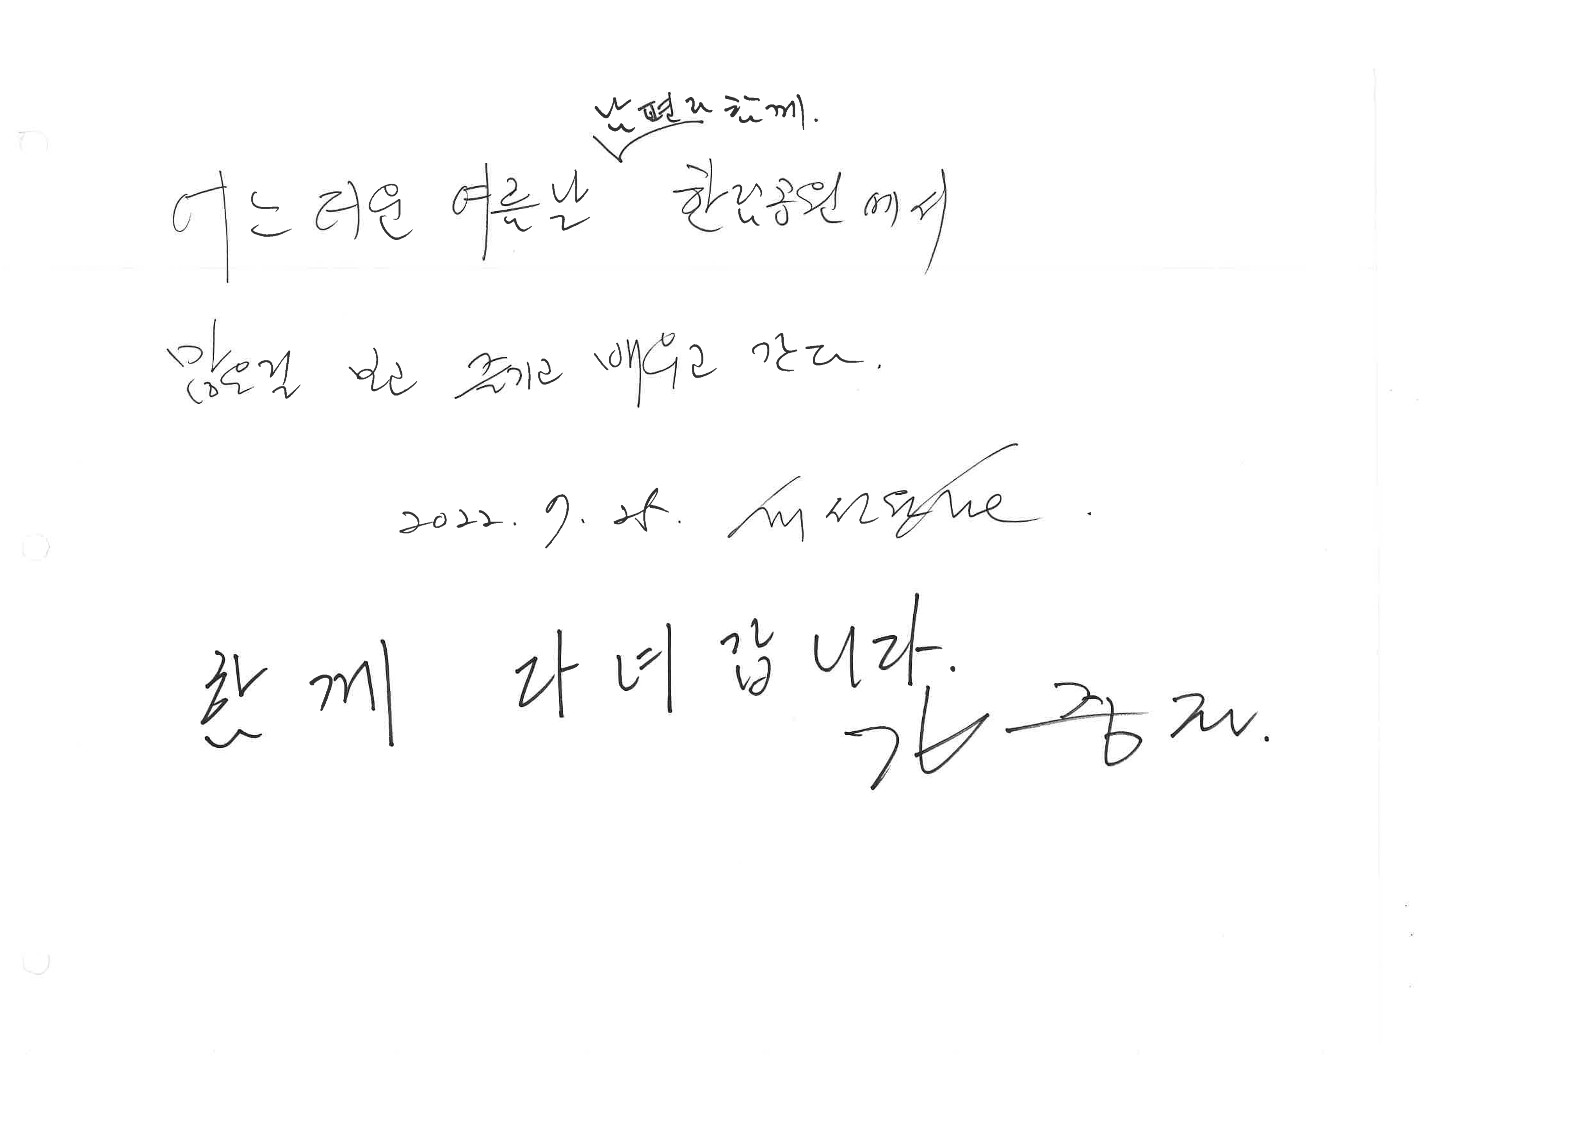 남편과 함께.
어느 더운 여름날 한림공원에서
많은걸 보고 즐기고 배우고 간다.
2022. 7. 25.
함께 다녀갑니다.